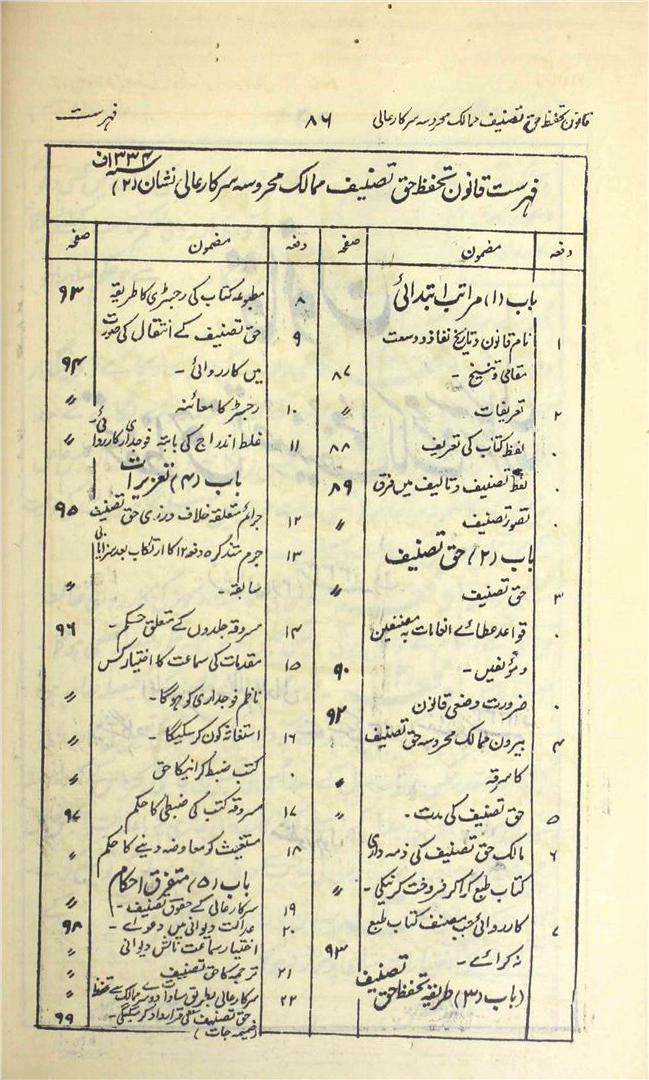 قانون تحفظ حق تصنیف ممالک محروسہ سرکار عالی ۸۶ فہرست
فہرست قانون تحفظ حق تصنیف ممالک محروسہ سرکار عالی نشان (۲) ۱۳۳۴ف
دفعہ مضمون صفحہ
باب (۱) مراتب ابتدائی
۱ نام قانون و تاریخ نفاذ و وسعت
مقامی و تنسیخ - ۸۷
۲ تعریفات "
۰ لفظ کتاب کی تعریف ۸۸
۰ لفظ تصنیف و تالیف میں فرق ۸۹
۰ تصور تصنیف "
باب (۲) حق تصنیف
۳ حق تصنیف "
۰ قواعد عطائے انعامات بہ مصنفین
و مؤلفین - ۹۰
۰ ضرورت وضعی قانون ۹۲
۴ بیرون ممالک محروسہ حق تصنیف
کا سرقہ "
۵ حق تصنیف کی مدت - "
۶ مالک حق تصنیف کی ذمہ داری
کتاب طبع کراکر فروخت کرنیکی - "
۷ کارروائی جب مصنف کتاب طبع
نہ کرائے - ۹۳
(باب (۳) طریقہ تحفظ حق تصنیف
دفعہ مضمون صفحہ
۸ مطبوعہ کتاب کی رجسٹری کا طریقہ ۹۳
۹ حق تصنیف کے انتقال کی صورت
میں کارروائی - ۹۴
۱۰ رجسٹر کا معائنہ "
۱۱ غلط اندراج کی بابتہ فوجداری کارروائی - "
باب (۴) تعزیرات
۱۲ جرائم متعلقہ خلاف ورزی حق تصنیف ۹۵
۱۳ جرم متذکرہ دفعہ ۱۲ کا ارتکاب بعد سزایابی
سابقہ - "
۱۴ مسروقہ جلدوں کے متعلق حکم - ۹۶
۱۵ مقدمات کی سماعت کا اختیار کس
ناظم فوجداری کو ہوگا - "
۱۶ استغاثہ کون کرسکیگا - "
۰ کتب ضبط کرانیکا حق "
۱۷ مسروقہ کتب کی ضبطی کا حکم ۹۷
۱۸ مستغیث کو معاوضہ دینے کا حکم "
باب (۵) متفرق احکام
۱۹ سرکار عالی کے حقوق تصنیف - "
۲۰ عدالت دیوانی میں دعوے - ۹۸
اختیار سماعت نالش دیوانی
۲۱ ترجمہ کا حق تصنیف "
۲۲ سرکار عالی بطریق مساوات دوسرے ممالک سے تحفظ "
حق تصنیف قرارداد کرسکیگی -
(ضمیمہ جات) ۹۹